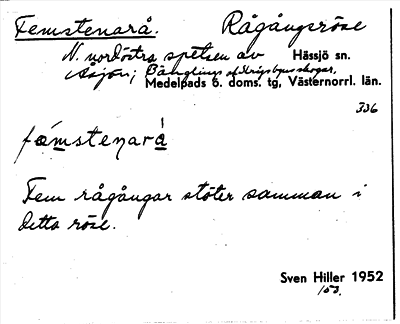 Femstenarå. Rågångsröse
N. nordöstra spetsen av Hässjö sn.
Åsjön;
Medelpads ö. doms. tg, Västernorrl. län.
336
fæmstenarå
Fem rågångar stöter samman i
detta röse.
Sven Hiller 1952
153.